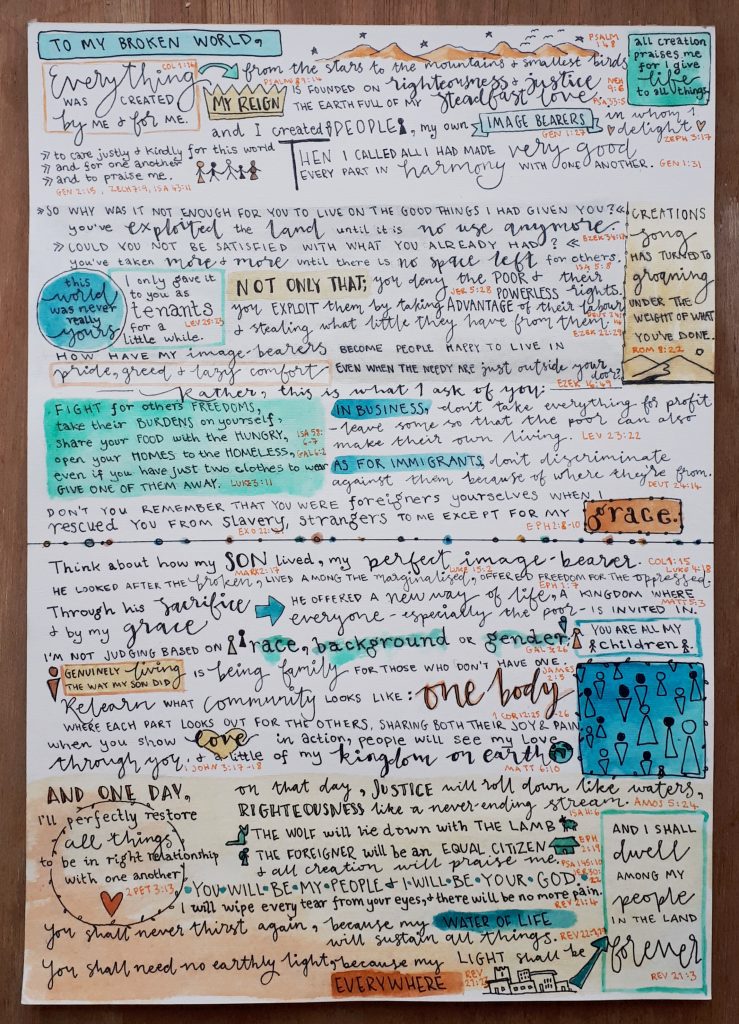 TO MY BROKEN WORLD,
Everything
WAS CREATED
by ME & for ME.
COL 1:16
from the stars to the mountains & smallest birds
PSALM 148
all creation
praises me
for I give
life
to all things.
NEH 9:6
PSALM 89:14
MY REIGN IS FOUNDED ON righteousness & justice
THE EARTH FULL OF MY steadfast love.
PSA 33:5
and I created PEOPLE, my own IMAGE BEARERS in whom I delight
GEN 1:27
ZEPH 3:17
» to care justly & kindly for this world
» and for one another
» and to praise me.
GEN 2:15, ZECH 7:9, ISA 43:11
THEN I CALLED ALL I HAD MADE very good
EVERY PART IN harmony WITH ONE ANOTHER. GEN 1:31
»SO WHY WAS IT NOT ENOUGH FOR YOU TO LIVE ON THE GOOD THINGS I HAD GIVEN YOU?«
you've exploited the land until it is no use anymore.
» COULD YOU NOT BE SATISFIED WITH WHAT YOU ALREADY HAD? «
you've taken more & more until there is no space left for others.
ISA 5:8
CREATIONS
song
HAS TURNED TO
groaning
UNDER THE
WEIGHT OF WHAT
YOU'VE DONE.
ROM 8:22
this
world
was never
really
yours
I only gave it
to you as
tenants
for a
little while.
LEV 25:23
NOT ONLY THAT; you deny the POOR & their
POWERLESS rights.
JER 5:28
you EXPLOIT them by taking ADVANTAGE of their labour
& stealing what little they have from them.
EZEK 22:29
HOW HAVE MY image-bearers BECOME PEOPLE HAPPY TO LIVE IN
pride, greed & lazy comfort EVEN WHEN THE NEEDY ARE just outside your door?
EZEK 16:49
Rather, this is what I ask of you:
FIGHT for others FREEDOMS,
take their BURDENS on yourself,
share your FOOD with the HUNGRY,
open your HOMES to the HOMELESS,
even if you have just two clothes to wear
GIVE ONE OF THEM AWAY. LUKE 3:11
ISA 58:6-7
GAL 6:2
IN BUSINESS, don't take everything for profit
- leave some so that the poor can also
make their own living. LEV 23:22
AS FOR IMMIGRANTS, don't discriminate
against them because of where they're from.
DEUT 24:14
DON'T YOU REMEMBER THAT YOU WERE foreigners yourselves WHEN I
rescued YOU FROM slavery, strangers TO ME EXCEPT FOR MY grace.
EPH 2:8-10
Think about how my SON lived, my perfect image-bearer. COL 1:15
MARK 2:17
LUKE 15:2
LUKE 4:18
HE LOOKED AFTER THE broken, LIVED AMONG THE marginalised, OFFERED FREEDOM FOR THE oppressed.
EPH 1:7
Through his sacrifice
& by my grace
HE OFFERED A new way of life, A KINGDOM WHERE
everyone - especially the poor - IS INVITED IN.
MATT 5:3
I'M NOT JUDGING BASED ON race, background OR gender;
GAL 3:26
YOU ARE ALL MY
children.
GENUINELY living
THE WAY MY SON DID
IS being family FOR THOSE WHO DON'T HAVE ONE.
Relearn WHAT community LOOKS LIKE: one body
1 COR 12:25-26
WHERE EACH PART LOOKS OUT FOR THE OTHERS, SHARING BOTH THEIR JOY & PAIN.
when you show love in action, people will see my love
through you, & a little of my kingdom on earth
1 JOHN 3:17-18
MATT 6:10
AND ONE DAY,
I'll perfectly restore
all things
to be in right relationship
with one another
2 PET 3:13
on that day, JUSTICE will roll down like waters,
RIGHTEOUSNESS like a never-ending stream. AMOS 5:24
THE WOLF will lie down with THE LAMB
THE FOREIGNER will be an EQUAL CITIZEN
EPH 2:19
& all creation will praise me. PSA 145:10
YOU WILL BE MY PEOPLE & I WILL BE YOUR GOD
I will wipe every tear from your eyes, & there will be no more pain.
REV 21:4
You shall never thirst again, because my WATER OF LIFE
will sustain all things.
You shall need no earthly light, because my LIGHT shall be
EVERYWHERE
AND I SHALL
dwell
AMONG MY
people
IN THE LAND
forever
REV 21:3